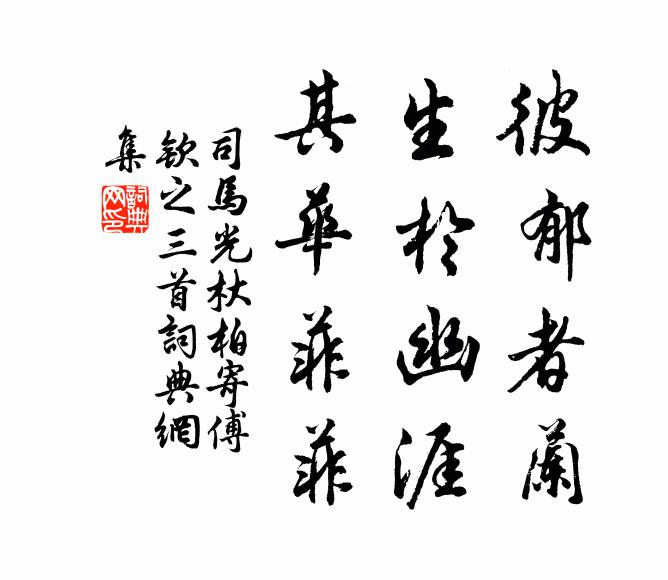 彼郁者蘭
生於幽涯
其華菲菲
司馬光杕柏寄傅
欽之三首詞典網
集
詞典
网印